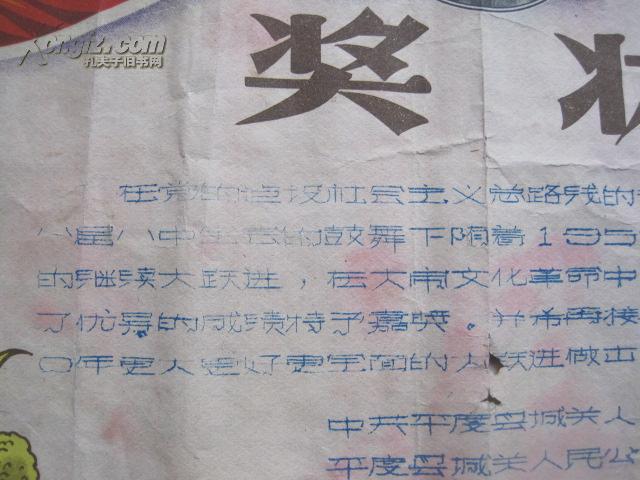 Kongfz.com
孔夫子旧书网
奖 状
在党的建设社会主义总路线的
八届八中全会的鼓舞下随着195
的继续大跃进，在大闹文化革命中
了优异的成绩特予嘉奖。并希再接
0年更大更好更全面的大跃进做出
中共平度县城关人
平度县城关人民公